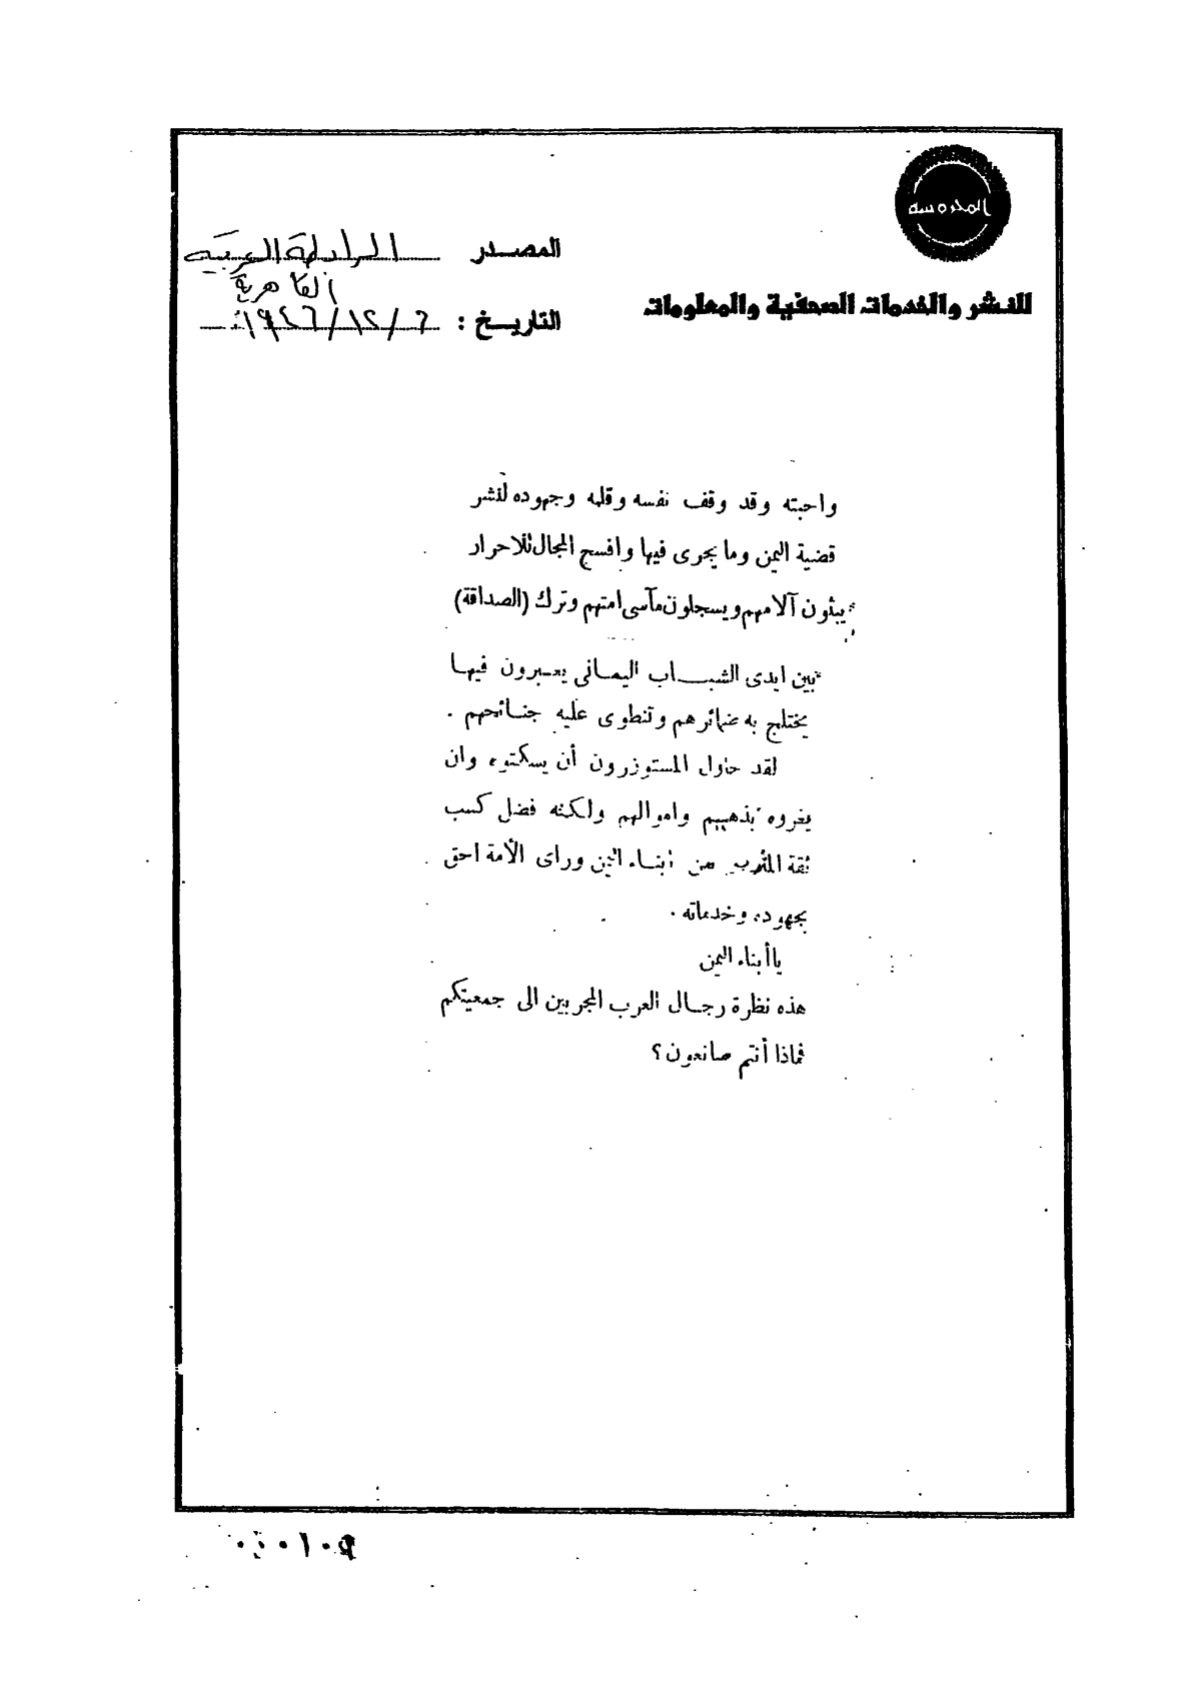 المحروسه
المصدر الرابطة العربية
القاهرية
للنشر والخدمات الصحفية والمعلومات
التاريخ : ٦ / ١٢ / ١٩٤٦
واحبته وقد وقف نفسه وقلمه وجهوده لنشر
قضية اليمن وما يجرى فيها وافسح المجال للاحرار
يبثون آلامهم ويسجلون مآسى امتهم وترك (الصداقة)
بين ايدى الشبــاب اليمـانى يعـبرون فيهـا
يختلج به ضمائرهم وتنطوى عليه جنـائحهم .
لقد حاول المستوزرون أن يسكتوه وان
يغروه بذهبهم واموالهم ولكنه فضل كسب
ثقة من أبنـاء اليمن وراى الأمة احق
بجهوده وخدماته .
ياأبناء اليمن
هذه نظرة رجـال العرب المجربين الى جمعيتكم
فماذا أنتم صانعون ؟